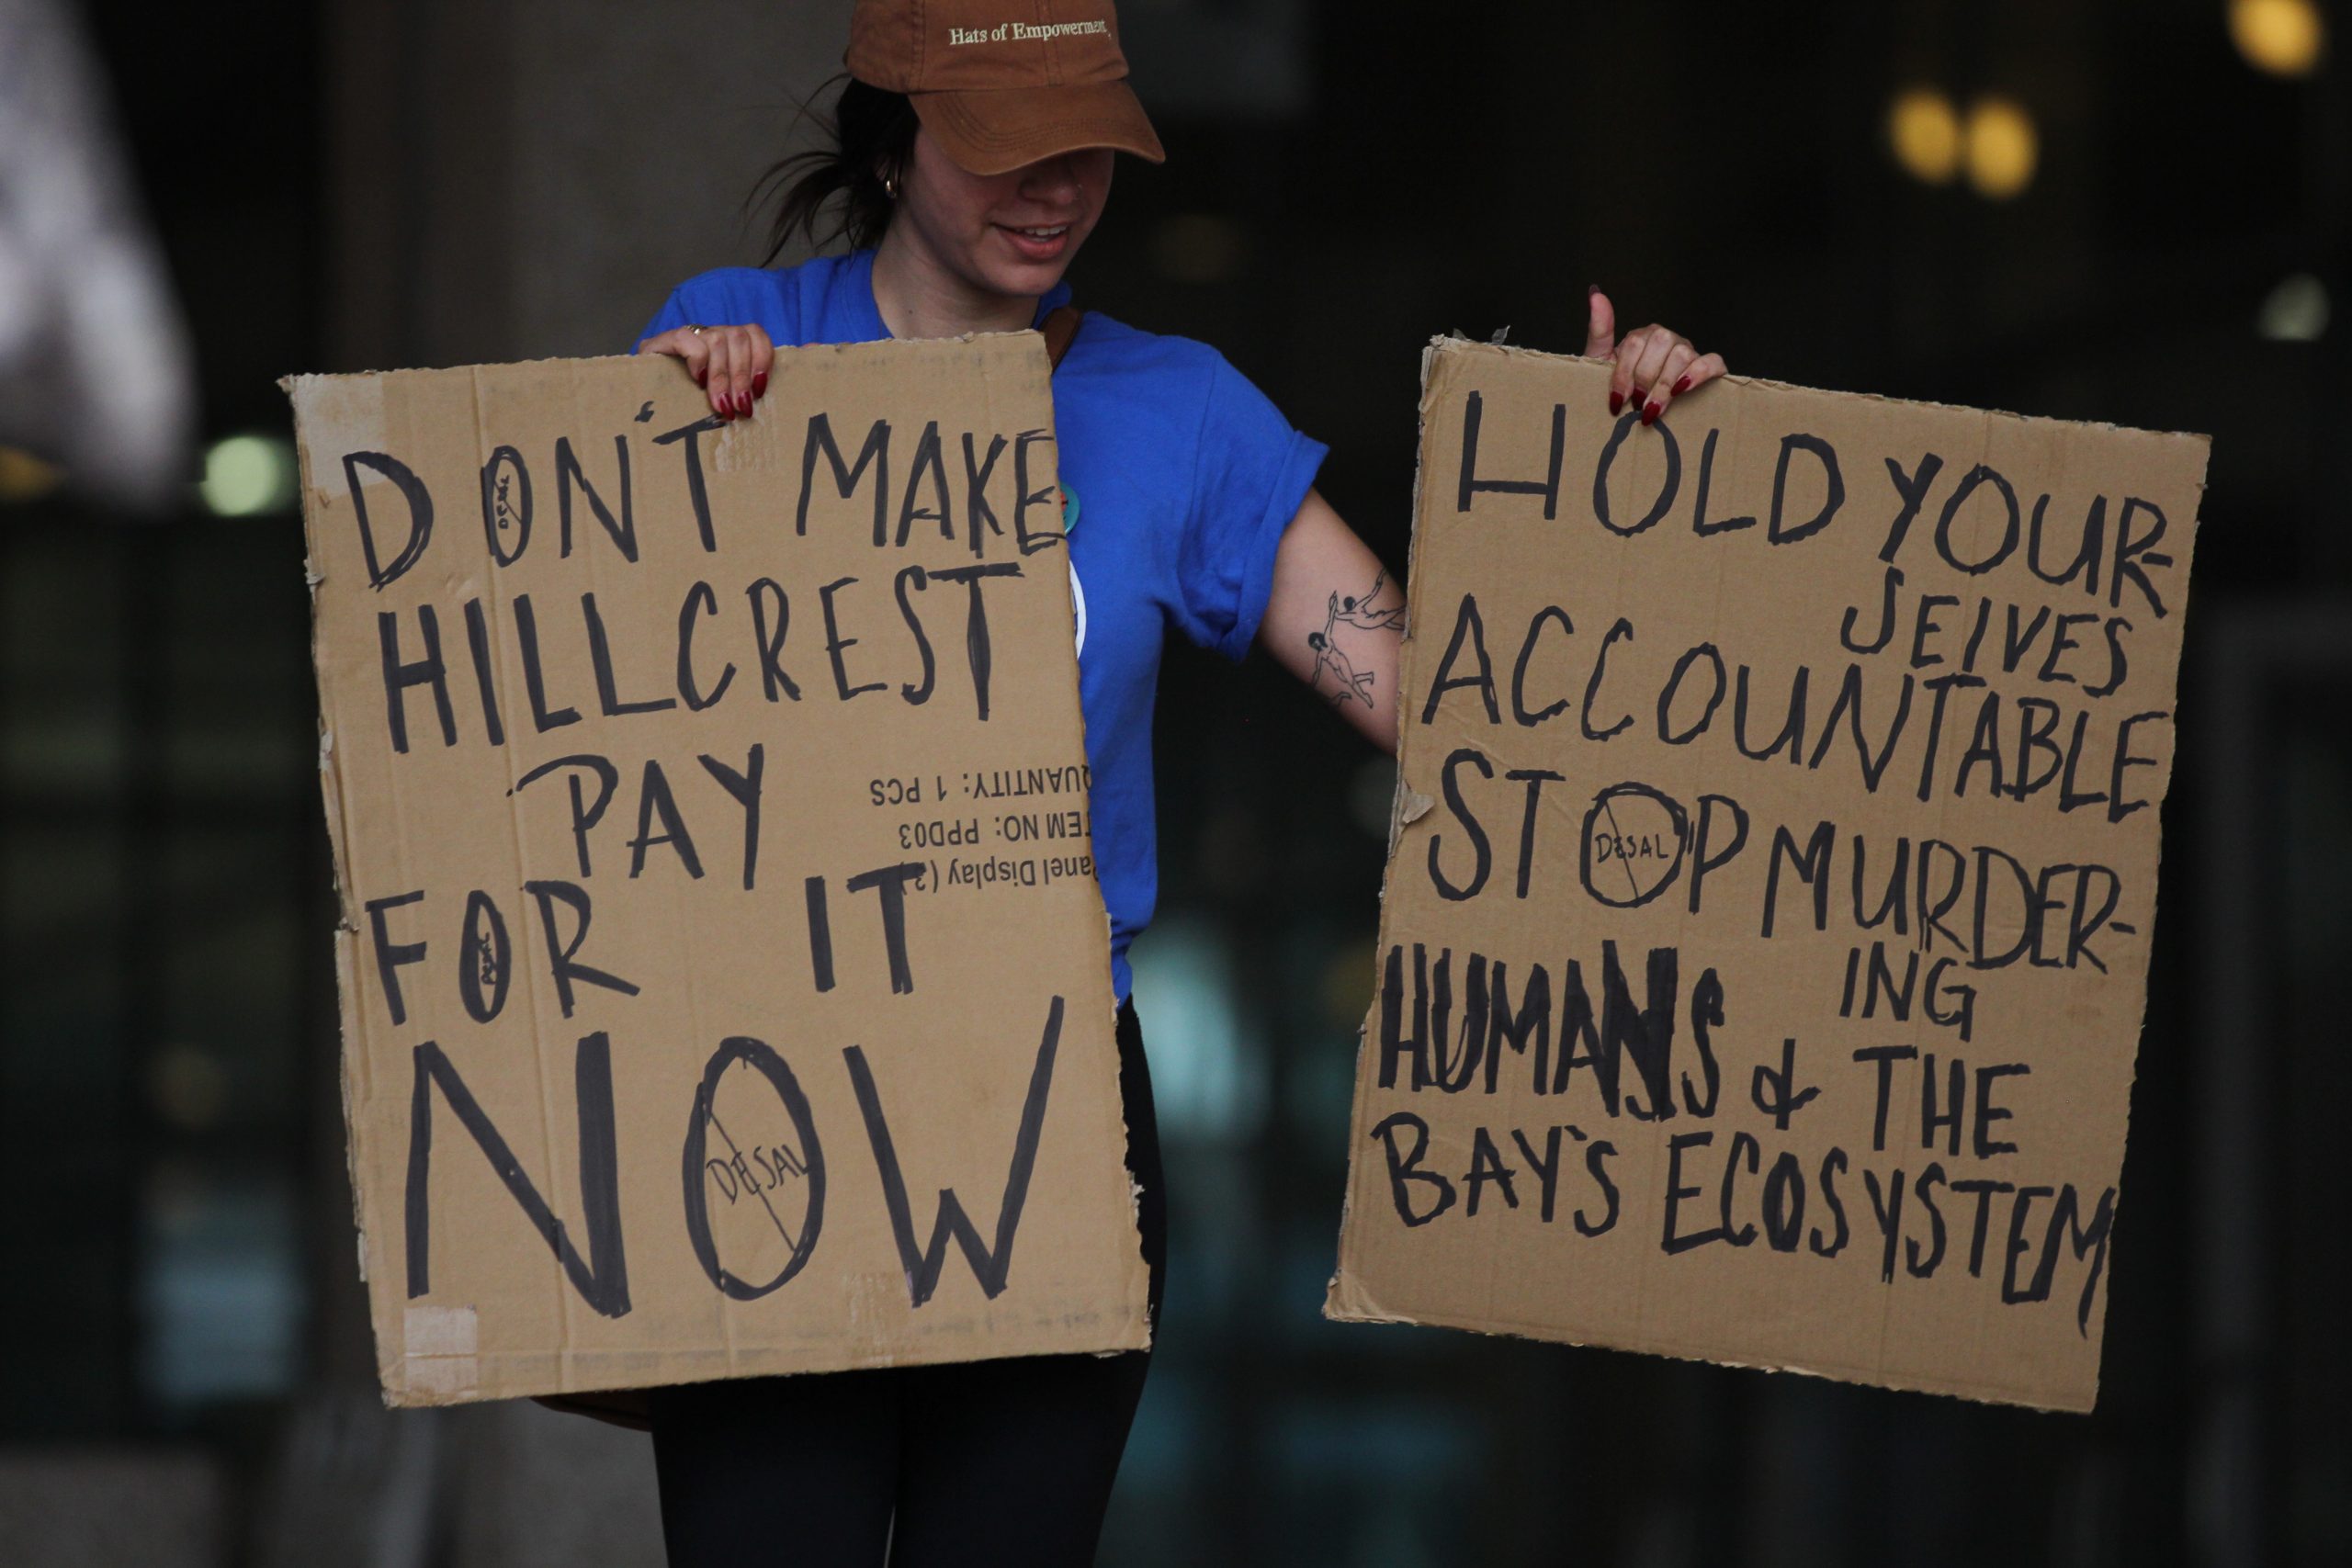 Hats of Empowerment
DON'T MAKE
DESAL
HILLCREST
PAY
QUANTITY: 1 PCS
TEM NO: PPD03
Panel Display (3)
FOR IT
DESAL
NOW
DESAL
HOLD YOUR-
SEIVES
ACCOUNTABLE
STOP MURDER-
DESAL
ING
HUMANS & THE
BAY'S ECOSYSTEM